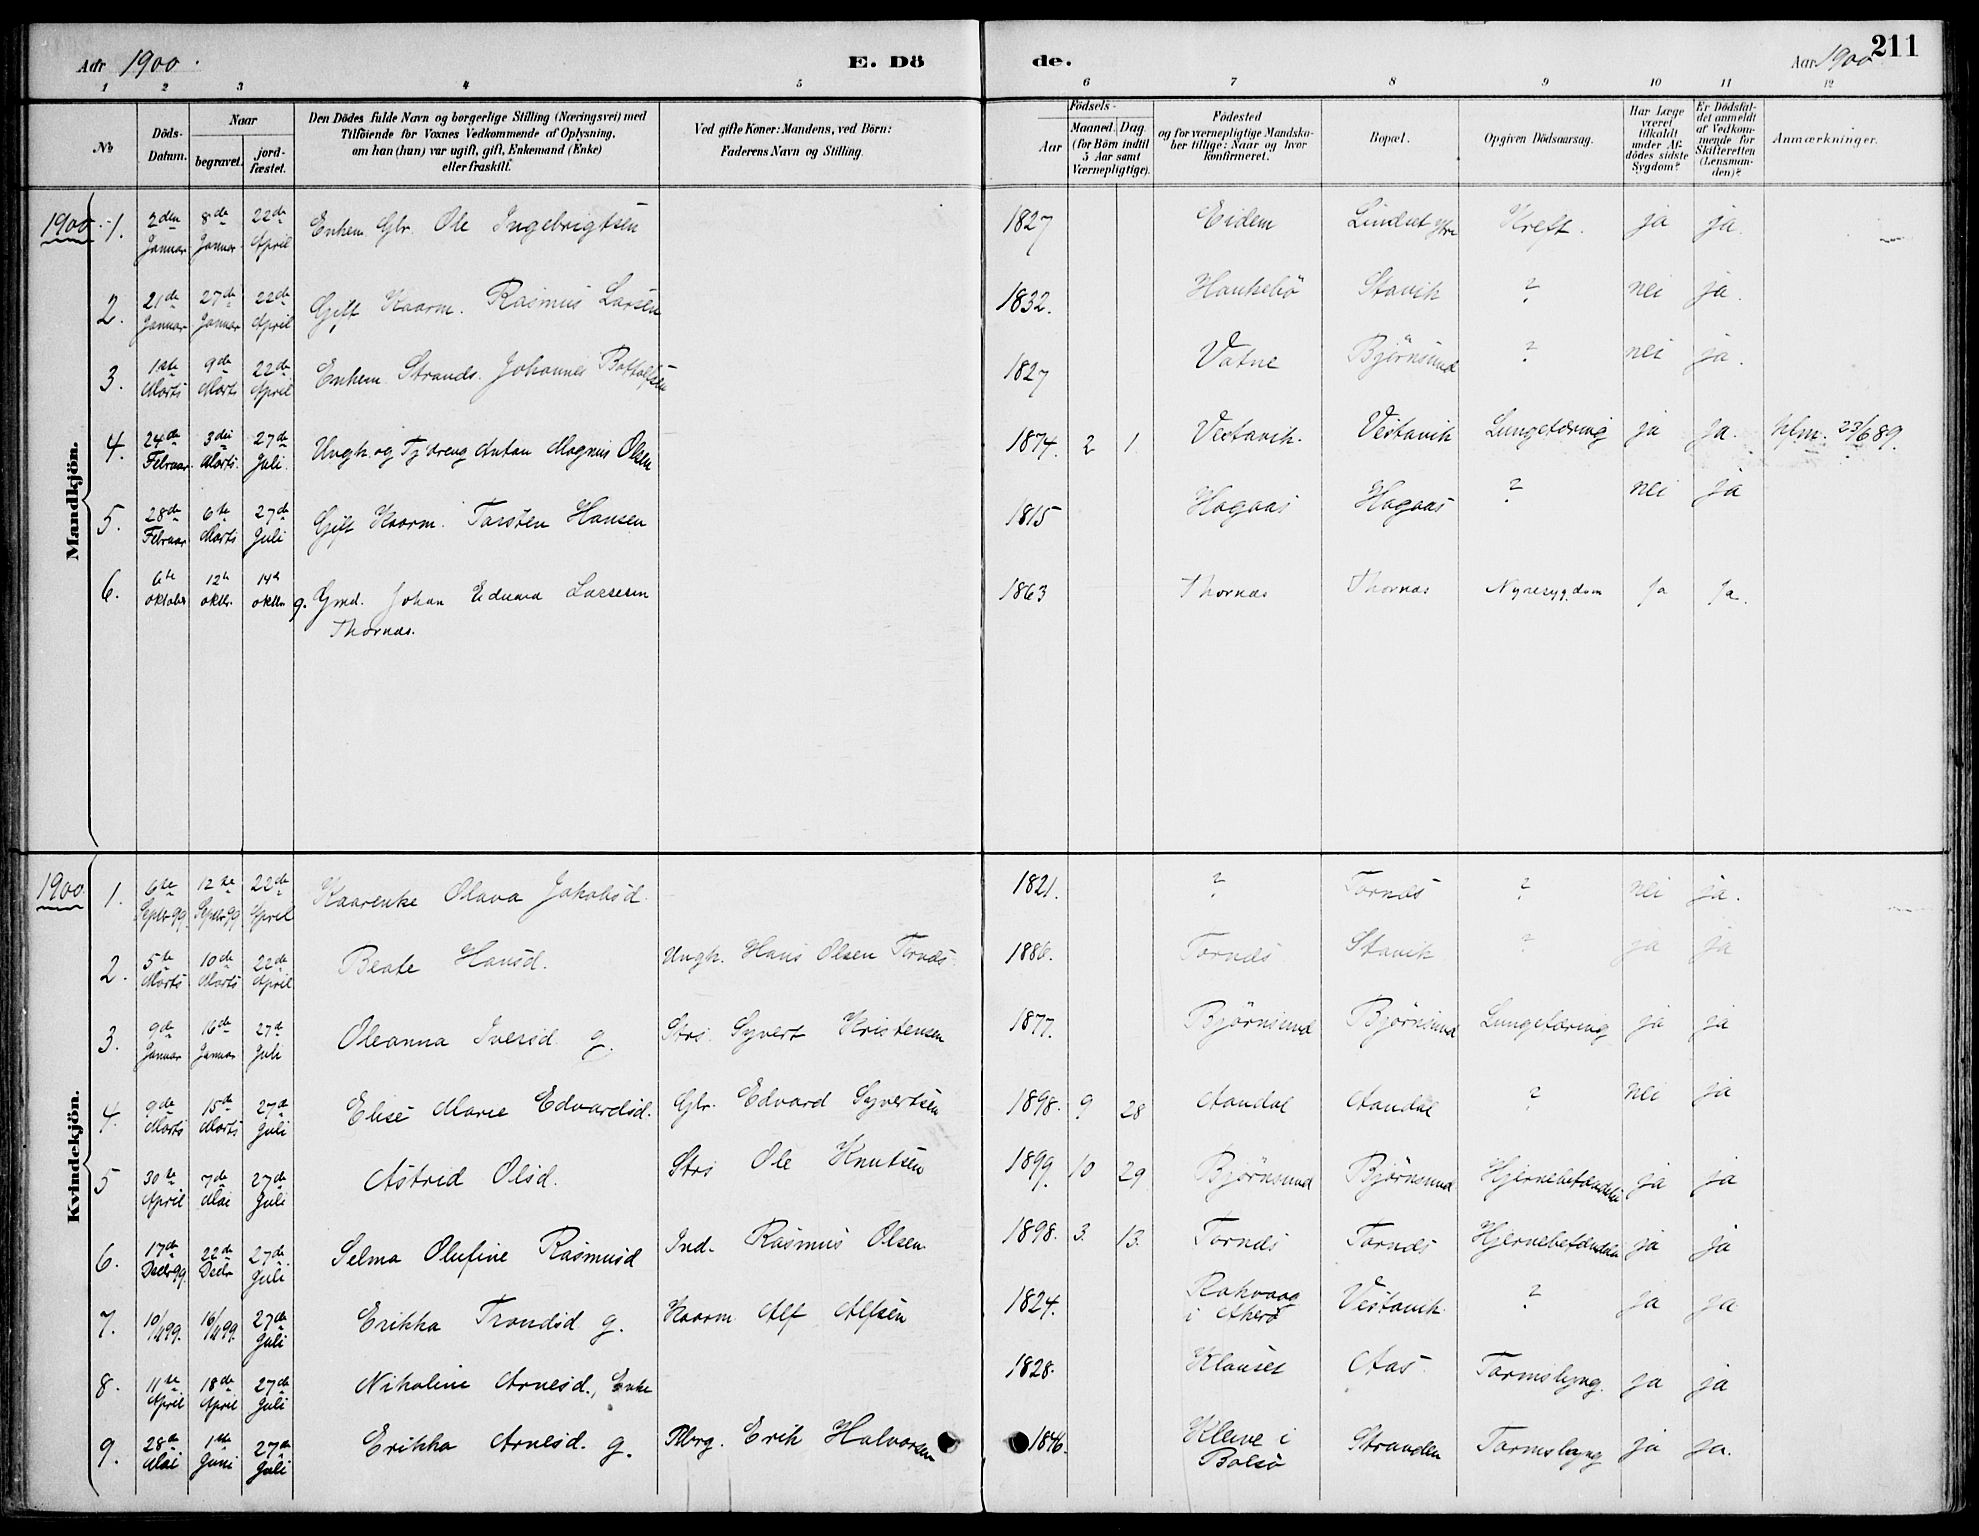 Aar 1900. E. Dö
de. Aar 1900 211
1 2 3 4 5 6 7 8 9 10 11 12
No Döds-Datum. Naar begravet. jord-fæstet. Den Dödes fulde Navn og borgerlige Stilling (Næringsvei) med Tilföiende for Voxnes Vedkommende af Oplysning, om han (hun) var ugift, gift, Enkemand (Enke) eller fraskilt. Ved gifte Koner: Mandens, ved Börn: Faderens Navn og Stilling. Födsels- Aar Maaned. Dag. (for Börn indtil 5 Aar samt Værnepligtige). Födested og for værnepligtige Mandskaber tillige: Naar og hvor konfirmeret. Bopæl. Opgiven Dödsaarsag. Har Læge været tilkaldt under Afdödes sidste Sygdom? Er Dödsfaldet anmeldt af Vedkommende for Skifteretten (Lensmanden)? Anmærkninger.
Mandkjön.
1900. 1. 2den Januar 8de Januar 22de April Enkem. Glr. Ole Ingebrigtsen 1827 Eidem Lindset Kreft. ja ja.
2. 21de Januar 27de Januar 22de April Gift Kaarm. Rasmus Larsen 1832. Haukebö Stavik ? nei ja.
3. 1ste Marts 9de Marts 22de April Enkem Strands. Johannes Bottolfsen 1827 Vatne Björnsund ? nei ja.
4. 24de Februar 3die Marts. 27de Juli. Ungk. og Tj.dreng Anton Magnus Olsen 1874. 2 1. Vestavik. Vestavik Lungetæring ja ja. 23/6 89.
5. 28de Februar 6te Marts 27de Juli Gift Kaarm. Torsten Hansen 1815 Hagaas Hagaas ? nei ja
6. 6te oktober 12te oktbr. 14de oktbr g. Gmd. Johan Edvard Larsen 1863 Thornæs Thornæs Nyresygdom Ja Ja.
Thornæs.
Kvindekjön.
1900. 1. 6te Septbr 99. 12te Septbr 99 22de April Kaarenke Olava Jakobsd. 1821. ? Tornæs ? nei ja.
2. 5te Marts 10de Marts 22de April Beate Hansd. Ungk. Hans Olsen Tornæs. 1886. Tornæs Stavik ? ja ja
3. 9de Januar 16de Januar 27de Juli Oleanna Iversd. g. Strs. Syvert Kristensen 1877. Björnsund Björnsund Lungetæring ja ja
4. 9de Marts 15de Marts 27de Juli Elise Marie Edvardsd. Glr. Edvard Syvertsen 1898. 9 28 Aandal Aandal ? nei ja
5 30te April 7de Mai 27de Juli Astrid Olsd. Strs Ole Knutsen 1899. 10 29. Björnsund Björnsund Hjernebetændelse ja ja
6. 17de Decbr 99. 22de Decbr 27de Juli Selma Olufine Rasmusd Ind. Rasmus Olsen. 1898. 3. 13. Tornæs Tornæs Hjernebetændelse ja ja
7. 10/11 99. 16/11 99. 27de Juli Erikka Trondsd g. Kaarm Alf Alfsen 1824. Rakvaag i Akerö Vestavik. ? ja ja
8. 11te April 18de April 27de Juli Nikoline Arnesd., Enke 1828. Klauset Aas. Tarmslyng. ja ja
9. 28de Mai 1ste Juni 27de Juli Erikka Arnesd. g. Erik Halvorsen 1846. Kleive i Bolsö Stranden Tarmslyng ja ja.